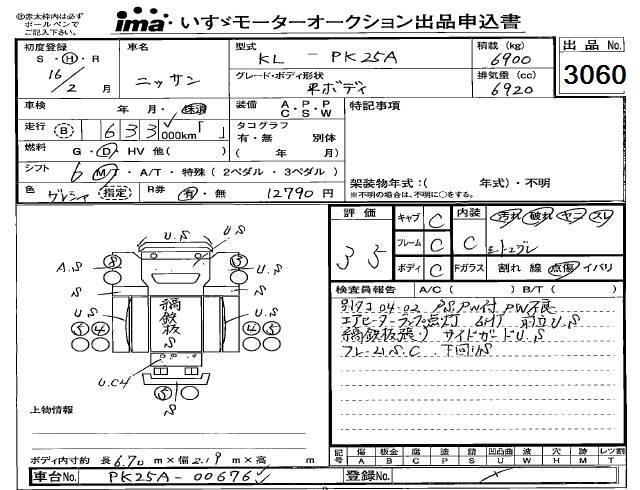 ⑩赤太枠内は必ず
ボールペンで
ご記入下さい。
ima いすゞモーターオークション出品申込書
初度登録
S・H・R
16/2 月
車名
ニッサン
型式
KL - PK25A
積載 (kg)
6900
出品 No.
3060
グレード・ボディ形状
平ボディ
排気量 (cc)
6920
車検 年 月・抹消
装備 A・P・P
C・S・W
特記事項
走行 (B) 1633 000km「 」
タコグラフ
有・無 別体
( 年 月)
燃料 G・D・HV 他( )
シフト 6 MT・A/T・特殊 (2ペダル・3ペダル)
架装物年式:( 年式)・不明
※不明の場合は、不明に○をする。
色 指定
R券 有・無 12790 円
評価
35
キャブ C
フレーム C
ボディ C
内装 C
汚れ 破れ ヤニ スレ
Fガラス 割れ 線 点傷 イバリ
検査員報告 A/C ( ) B/T ( )
04-02 P.S.PW付 PW不良
エアヒーターランプ点灯 前立U.S
縞鉄板張り サイドガードU.S
フレームS.C 下回りS
U.S
U.S
A.S
S
S
U.S
U.S
縞鉄板
S
U.C4
S
上物情報
ボディ内寸約 長 6.70 m×幅 2.19 m×高 m
記号 傷 A 板金 B 腐 C 塗 P 錆 S 凹凸曲 U 波 W 穴 H 跡 M レツ割 T
車台No. PK25A-00676
登録No.